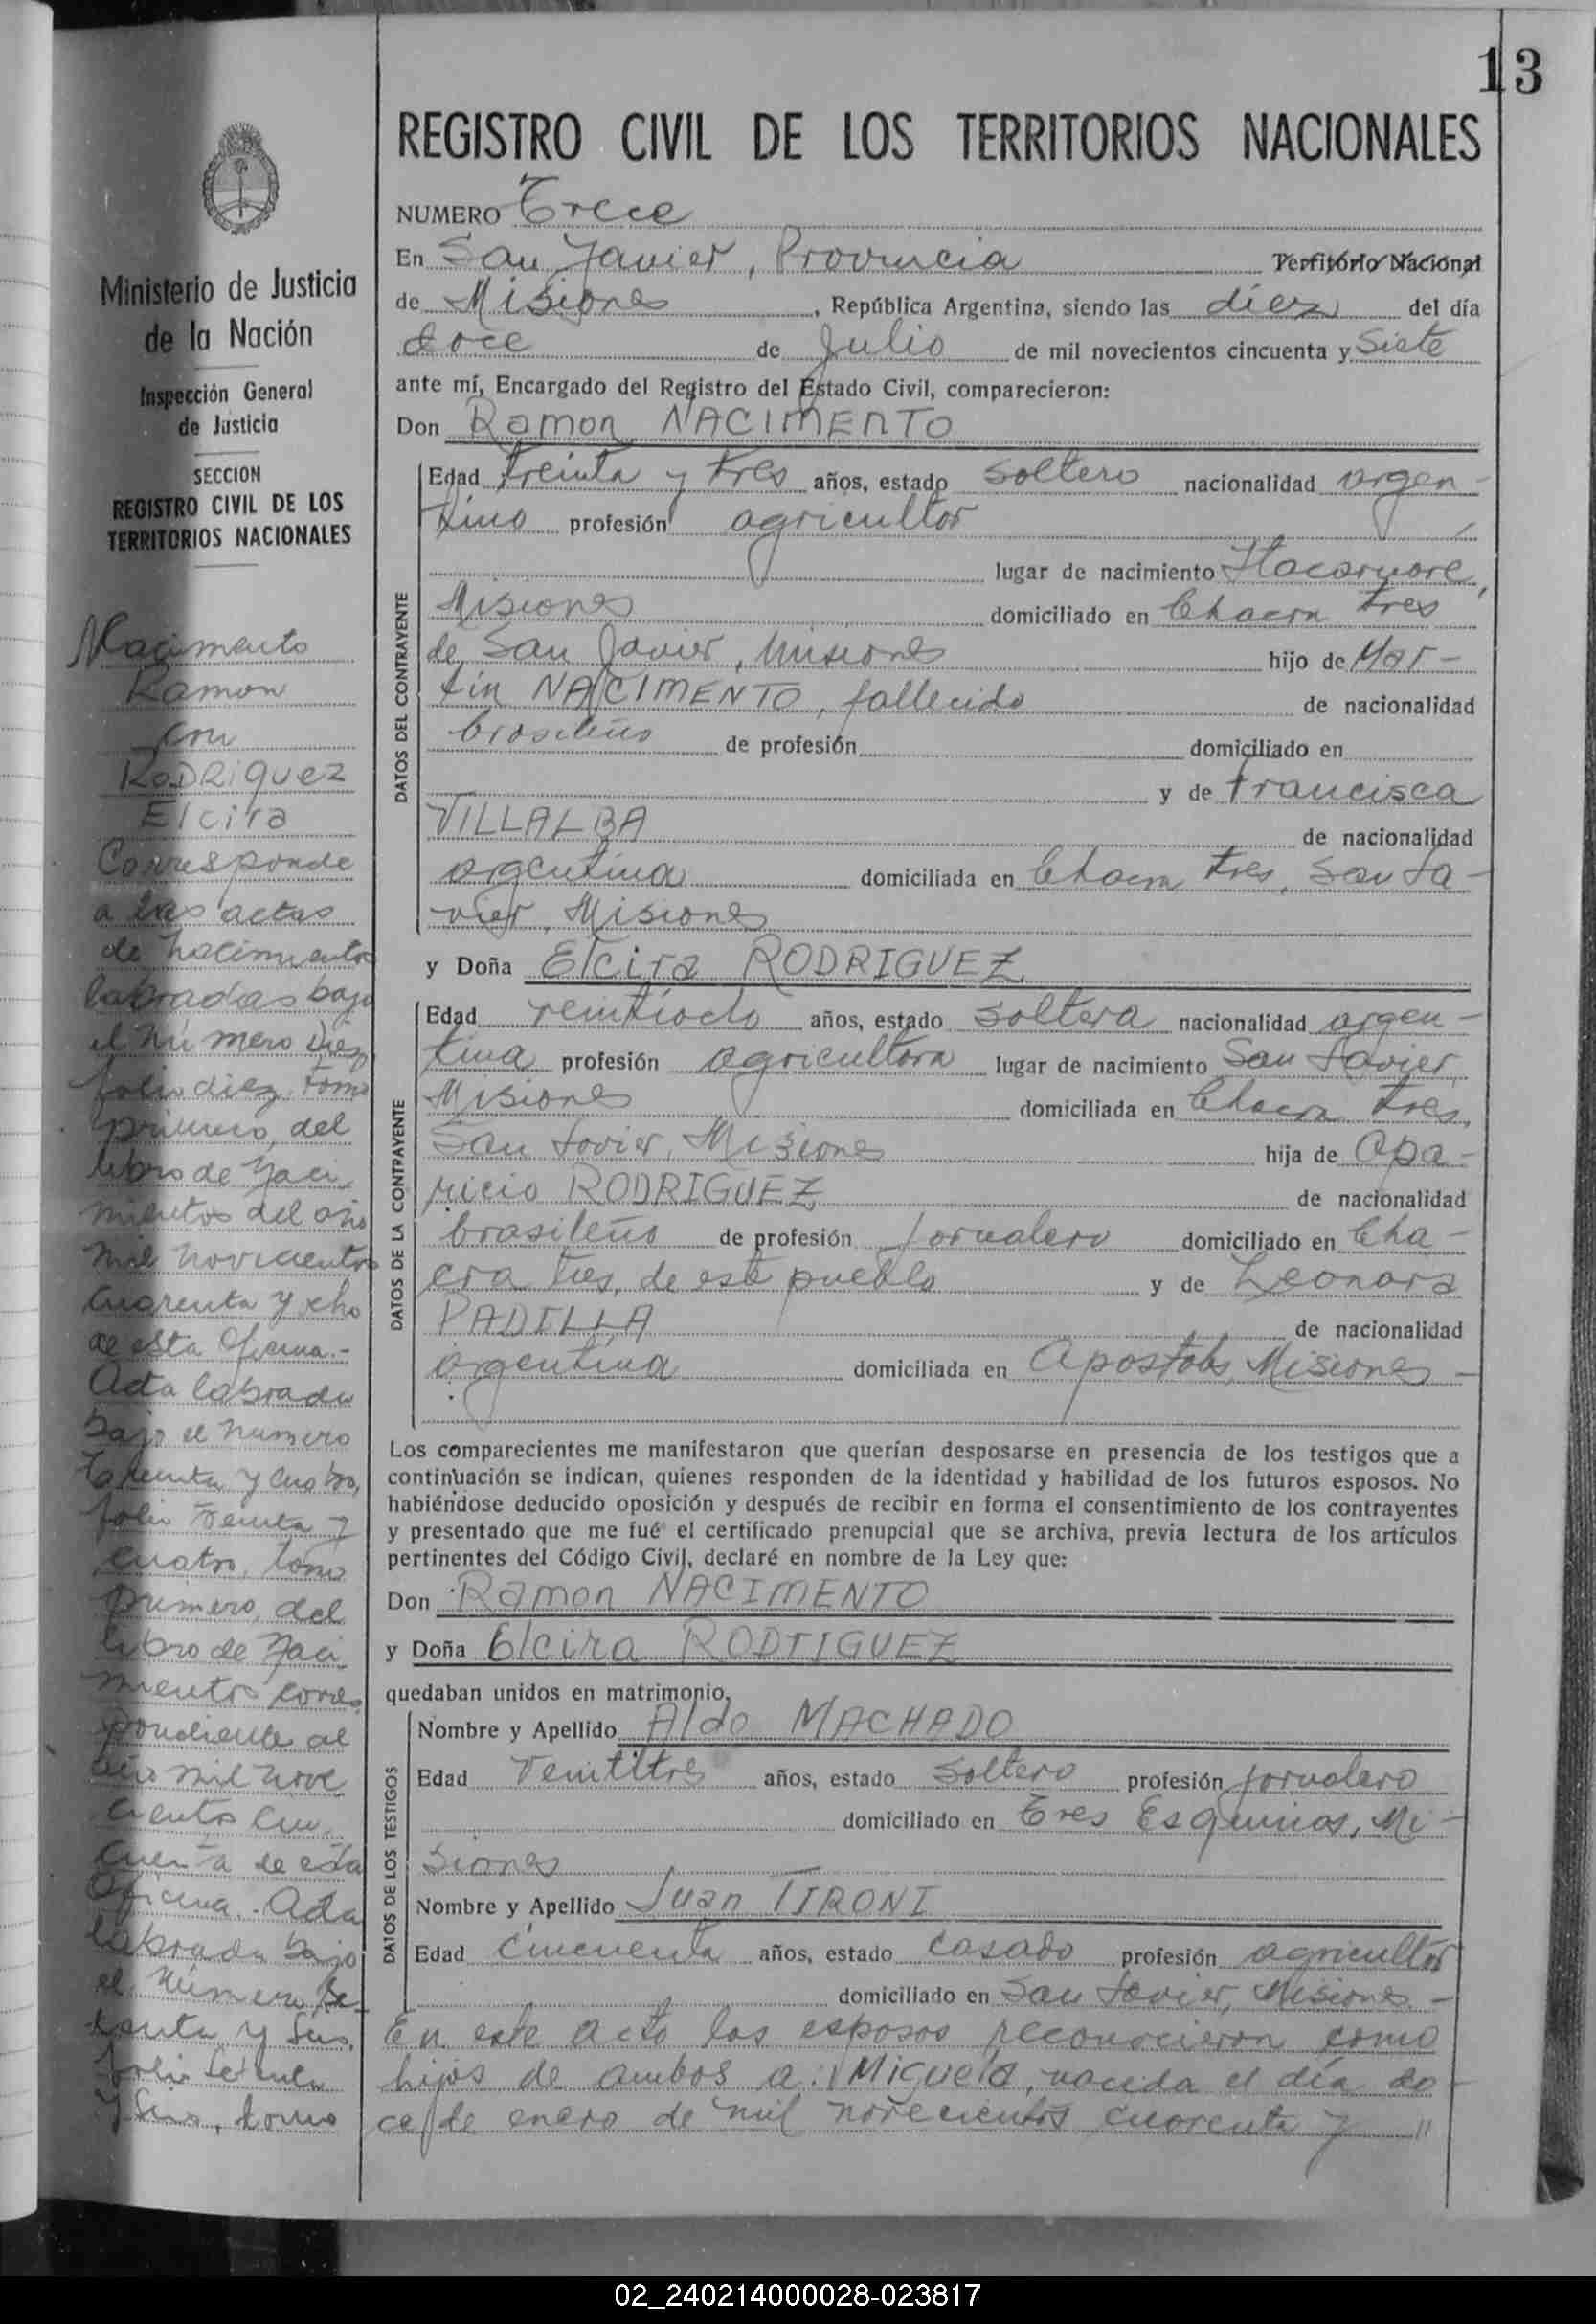 13
REGISTRO CIVIL DE LOS TERRITORIOS NACIONALES
NUMERO Trece
En San Javier, Provincia Territorio Nacional
de Misiones, República Argentina, siendo las diez del día
doce de Julio de mil novecientos cincuenta y Siete
ante mí, Encargado del Registro del Estado Civil, comparecieron:
Don Ramon NACIMENTO
DATOS DEL CONTRAYENTE
Edad treinta y tres años, estado soltero nacionalidad argen-
tino profesión agricultor
lugar de nacimiento Itacaruaré,
Misiones domiciliado en Chacra tres
de San Javier, Misiones hijo de Mar-
tin NACIMENTO, fallecido de nacionalidad
brasileño de profesión domiciliado en
y de Francisca
VILLALBA de nacionalidad
argentina domiciliada en Chacra tres, San Ja-
vier, Misiones
y Doña Elcira RODRIGUEZ
DATOS DE LA CONTRAYENTE
Edad veintiocho años, estado soltera nacionalidad argen-
tina profesión agricultora lugar de nacimiento San Javier
Misiones domiciliada en Chacra tres,
San Javier, Misiones hija de Apa-
ricio RODRIGUEZ de nacionalidad
brasileño de profesión jornalero domiciliado en Cha-
cra tres, de este pueblo y de Leonora
PADILLA de nacionalidad
argentina domiciliada en Apostoles, Misiones -
Los comparecientes me manifestaron que querían desposarse en presencia de los testigos que a
continuación se indican, quienes responden de la identidad y habilidad de los futuros esposos. No
habiéndose deducido oposición y después de recibir en forma el consentimiento de los contrayentes
y presentado que me fué el certificado prenupcial que se archiva, previa lectura de los artículos
pertinentes del Código Civil, declaré en nombre de la Ley que:
Don Ramon NACIMENTO
y Doña Elcira RODTIGUEZ
quedaban unidos en matrimonio.
DATOS DE LOS TESTIGOS
Nombre y Apellido Aldo MACHADO
Edad Veintitres años, estado soltero profesión jornalero
domiciliado en Tres Esquinas, Mi-
siones
Nombre y Apellido Juan TIRONI
Edad cincuenta años, estado casado profesión agricultor
domiciliado en San Javier, Misiones -
En este acto los esposos reconocieron como
hijos de ambos a: Miguela, nacida el día do-
ce de enero de mil novecientos cuarenta y //
Ministerio de Justicia
de la Nación
Inspección General
de Justicia
SECCION
REGISTRO CIVIL DE LOS
TERRITORIOS NACIONALES
Nacimento
Ramon
con
RODRiguez
Elcira
Corresponde
a las actas
de nacimientos
labradas bajo
el número diez
folio diez, tomo
primero, del
libro de naci
mientos del año
mil novecientos
cuarenta y ocho
de esta Oficina.-
Acta labrada
bajo el numero
treinta y cuatro,
folio treinta y
cuatro, tomo
primero, del
libro de naci
mientos corres
pondiente al
año mil nove
cientos cin
cuenta de esta
Oficina. Acta
labrada bajo
el número se-
tenta y seis,
folio setenta
y seis, tomo
02_240214000028-023817